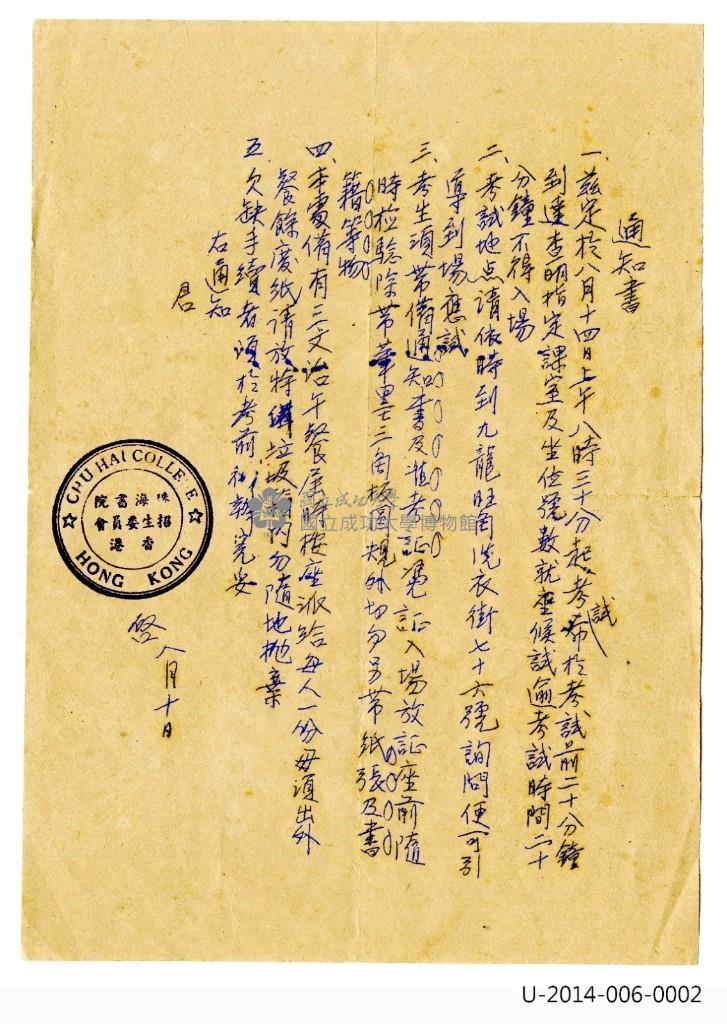 通知書
一、茲定於八月十四日上午八時三十分起考試希於考試前二十分鐘
到達查明指定課室及坐位號數就座候試逾考試時間二十
分鐘不得入場
二、考試地点請依時到九龍旺角洗衣街七十六號詢問便可引
導到場應試
三、考生須帶備通知書及准考証憑証入場放証座前隨
時檢驗除帶筆墨三角板圓規外切勿另帶紙張及書
籍等物
四、本處備有三文治午餐屆時按座派給每人一份毋須出外
餐餘廢紙請放特備垃圾箱內勿隨地拋棄
五、欠缺手續者須於考前補辦完妥
右通知
君
CHU HAI COLLE E
珠海書院
招生委員會
香港
HONG KONG
啓 八月十日
國立成功大學
國立成功大學博物館
U-2014-006-0002